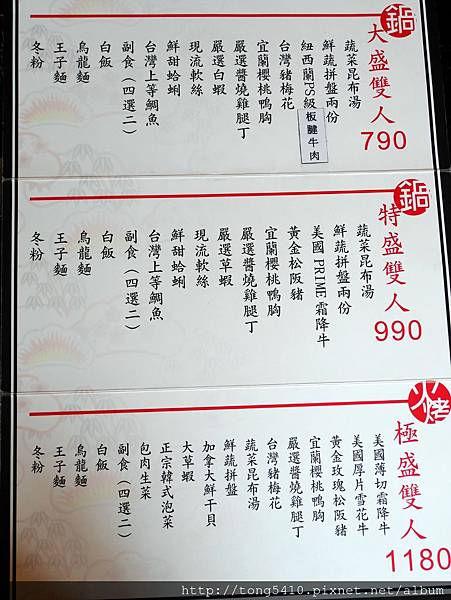 鍋
大盛雙人
790
蔬菜昆布湯
鮮蔬拼盤兩份
紐西蘭PS級板腱牛肉
台灣豬梅花
宜蘭櫻桃鴨胸
嚴選醬燒雞腿丁
嚴選白蝦
現流軟絲
鮮甜蛤蜊
台灣上等鯛魚
副食（四選二）
白飯
烏龍麵
王子麵
冬粉
鍋
特盛雙人
990
蔬菜昆布湯
鮮蔬拼盤兩份
美國PRIME霜降牛
黃金松阪豬
宜蘭櫻桃鴨胸
嚴選醬燒雞腿丁
嚴選草蝦
現流軟絲
鮮甜蛤蜊
台灣上等鯛魚
副食（四選二）
白飯
烏龍麵
王子麵
冬粉
烤
極盛雙人
1180
美國薄切霜降牛
美國厚片雪花牛
黃金玫瑰松阪豬
宜蘭櫻桃鴨胸
嚴選醬燒雞腿丁
台灣豬梅花
蔬菜昆布湯
鮮蔬拼盤
加拿大鮮干貝
大草蝦
正宗韓式泡菜
包肉生菜
副食（四選二）
白飯
烏龍麵
王子麵
冬粉
http://tong5410.pixnet.net/album